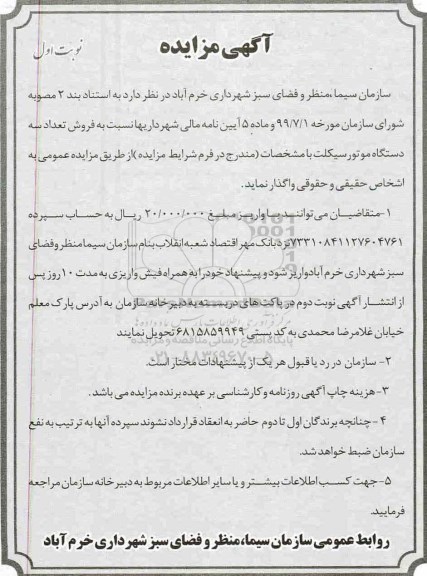 آگهی مزایده
نوبت اول
سازمان سیما،منظر و فضای سبز شهرداری خرم آباد در نظر دارد به استناد بند ۲ مصوبه
شورای سازمان مورخه ۹۹/۷/۱ و ماده ۵ آیین نامه مالی شهرداریها نسبت به فروش تعداد سه
دستگاه موتور سیکلت با مشخصات (مندرج در فرم شرایط مزایده )از طریق مزایده عمومی به
اشخاص حقیقی و حقوقی واگذار نماید.
۱-متقاضیان می توانند با واریز مبلغ ۲۰/۰۰۰/۰۰۰ ریال به حساب سپرده
۷۳۳۱۰۸۴۱۱۲۷۶۰۴۷۶۱نزد بانک مهر اقتصاد شعبه انقلاب بنام سازمان سیما منظر و فضای
سبز شهرداری خرم آبادواریز شود و پیشنهاد خود را به همراه فیش واریزی به مدت ۱۰ روز پس
از انتشار آگهی نوبت دوم در پاکت های در بسته به دبیر خانه سازمان به آدرس پارک معلم
خیابان غلامرضا محمدی به کد پستی ۶۸۱۵۸۵۹۹۴۹ تحویل نمایند
پایگاه اطلاع رسانی مناقصه و مزایده
۲- سازمان در رد یا قبول هر یک از پیشنهادات مختار است.
۳-هزینه چاپ آگهی روزنامه و کارشناسی بر عهده برنده مزایده می باشد.
۴-چنانچه برندگان اول تا دوم حاضر به انعقاد قرارداد نشوند سپرده آنها به ترتیب به نفع
سازمان ضبط خواهد شد.
۵-جهت کسب اطلاعات بیشتر و یا سایر اطلاعات مربوط به دبیر خانه سازمان مراجعه
فرمایید.
روابط عمومی سازمان سیما،منظر و فضای سبز شهرداری خرم آباد